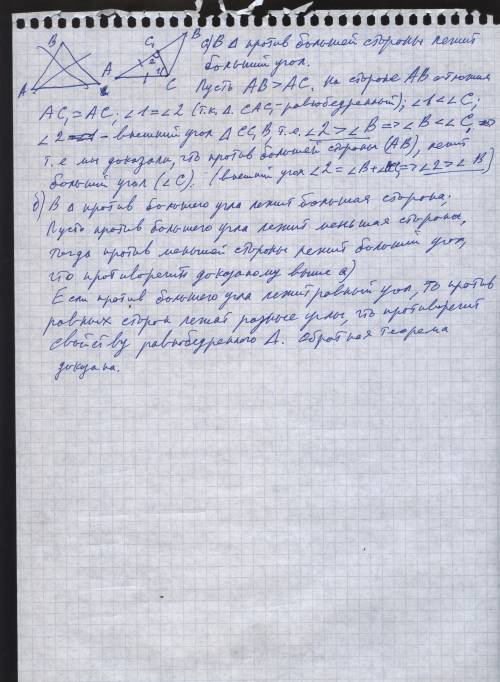 B
A
C₁ B
A 1 2 C
а) В Δ против большей стороны лежит
больший угол.
Пусть AB > AC. На стороне AB отложим
AC₁ = AC; ∠1 = ∠2 (т.к. Δ CAC₁ - равнобедренный); ∠1 < ∠C;
∠2 - внешний угол Δ CC₁B т.е. ∠2 > ∠B => ∠B < ∠C =>
т.е мы доказали, что против большей стороны (AB), лежит
больший угол (∠C). (внешний угол ∠2 = ∠B + => ∠2 > ∠B)
б) В Δ против большего угла лежит большая сторона.
Пусть против большего угла лежит меньшая сторона,
тогда против меньшей стороны лежит больший угол,
что противоречит доказаному выше а)
Если против большего угла лежит равный угол, то против
равных сторон лежат разные углы, что противоречит
свойству равнобедренного Δ. Обратная теорема
доказана.